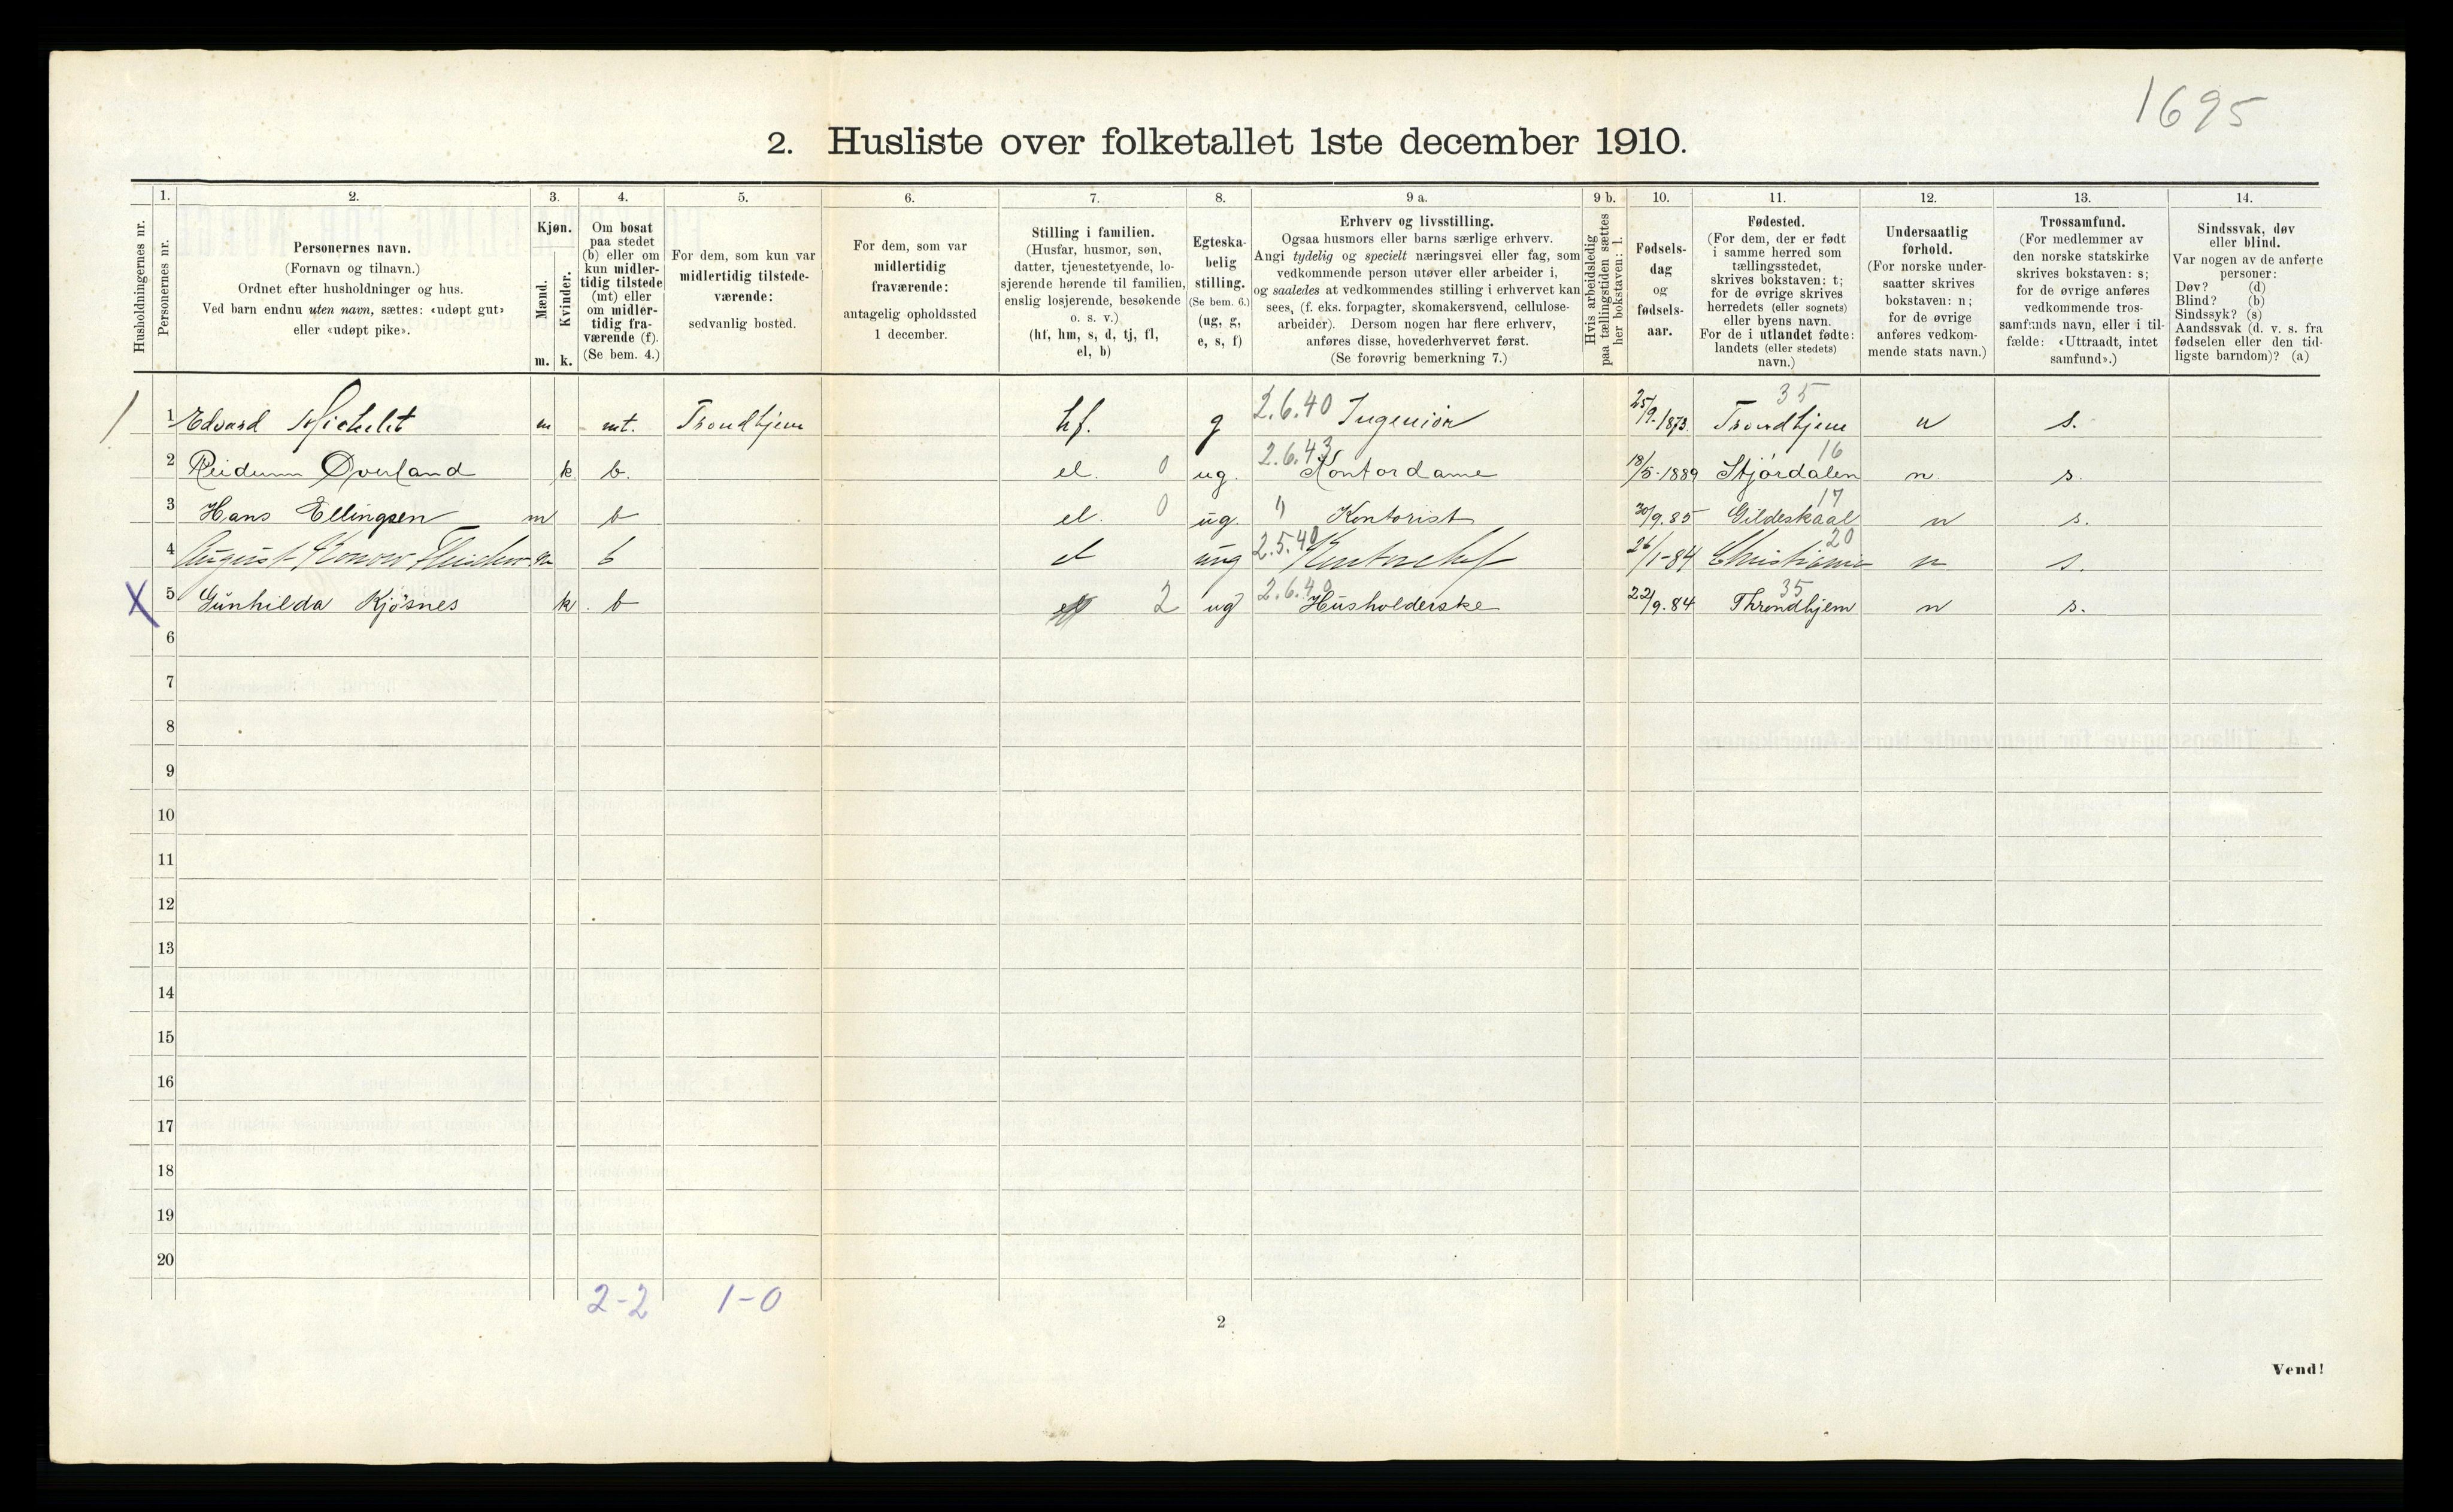 1695
2. Husliste over folketallet 1ste december 1910.
Husholdningernes nr.
1. Personernes nr.
2. Personernes navn. (Fornavn og tilnavn.) Ordnet efter husholdninger og hus. Ved barn endnu uten navn, sættes: «udøpt gut» eller «udøpt pike».
3. Kjøn. Mænd. m. Kvinder. k.
4. Om bosat paa stedet (b) eller om kun midlertidig tilstede (mt) eller om midlertidig fraværende (f). (Se bem. 4.)
5. For dem, som kun var midlertidig tilstedeværende: sedvanlig bosted.
6. For dem, som var midlertidig fraværende: antagelig opholdssted 1 december.
7. Stilling i familien. (Husfar, husmor, søn, datter, tjenestetyende, losjerende hørende til familien, enslig losjerende, besøkende o. s. v.) (hf, hm, s, d, tj, fl, el, b)
8. Egteskabelig stilling. (Se bem. 6.) (ug, g, e, s, f)
9 a. Erhverv og livsstilling. Ogsaa husmors eller barns særlige erhverv. Angi tydelig og specielt næringsvei eller fag, som vedkommende person utøver eller arbeider i, og saaledes at vedkommendes stilling i erhvervet kan sees, (f. eks. forpagter, skomakersvend, cellulosearbeider). Dersom nogen har flere erhverv, anføres disse, hovederhvervet først. (Se forøvrig bemerkning 7.)
9 b. Hvis arbeidsledig paa tællingstiden sættes her bokstaven: l.
10. Fødselsdag og fødselsaar.
11. Fødested. (For dem, der er født i samme herred som tællingsstedet, skrives bokstaven: t; for de øvrige skrives herredets (eller sognets) eller byens navn. For de i utlandet fødte: landets (eller stedets) navn.)
12. Undersaatlig forhold. (For norske undersaatter skrives bokstaven: n; for de øvrige anføres vedkommende stats navn.)
13. Trossamfund. (For medlemmer av den norske statskirke skrives bokstaven: s; for de øvrige anføres vedkommende trossamfunds navn, eller i tilfælde: «Uttraadt, intet samfund».)
14. Sindssvak, døv eller blind. Var nogen av de anførte personer: Døv? (d) Blind? (b) Sindssyk? (s) Aandssvak (d. v. s. fra fødselen eller den tidligste barndom)? (a)
1 1 Edvard Michelet m mt. Trondhjem hf. g 2.6.40 Ingeniør 25/9.1873. 35 Trondhjem n s.
2 Reidunn Øverland k b. el. 0 ug. 2.6.43 Kontordame 18/5.1889 16 Stjørdalen n. s.
3 Hans Ellingsen m b el. 0 ug. " Kontorist 30/9.85 17 Gildeskaal n s.
4 August Konow m b el ung 2.5.40 26/1-84 20 Christiania n s.
X 5 Gunhilda Kjøsnes k. b 2 ug 2.6.40 Husholderske 22/9.84 35 Throndhjem n s.
6
7
8
9
10
11
12
13
14
15
16
17
18
19
20
2-2 1-0
2
Vend!